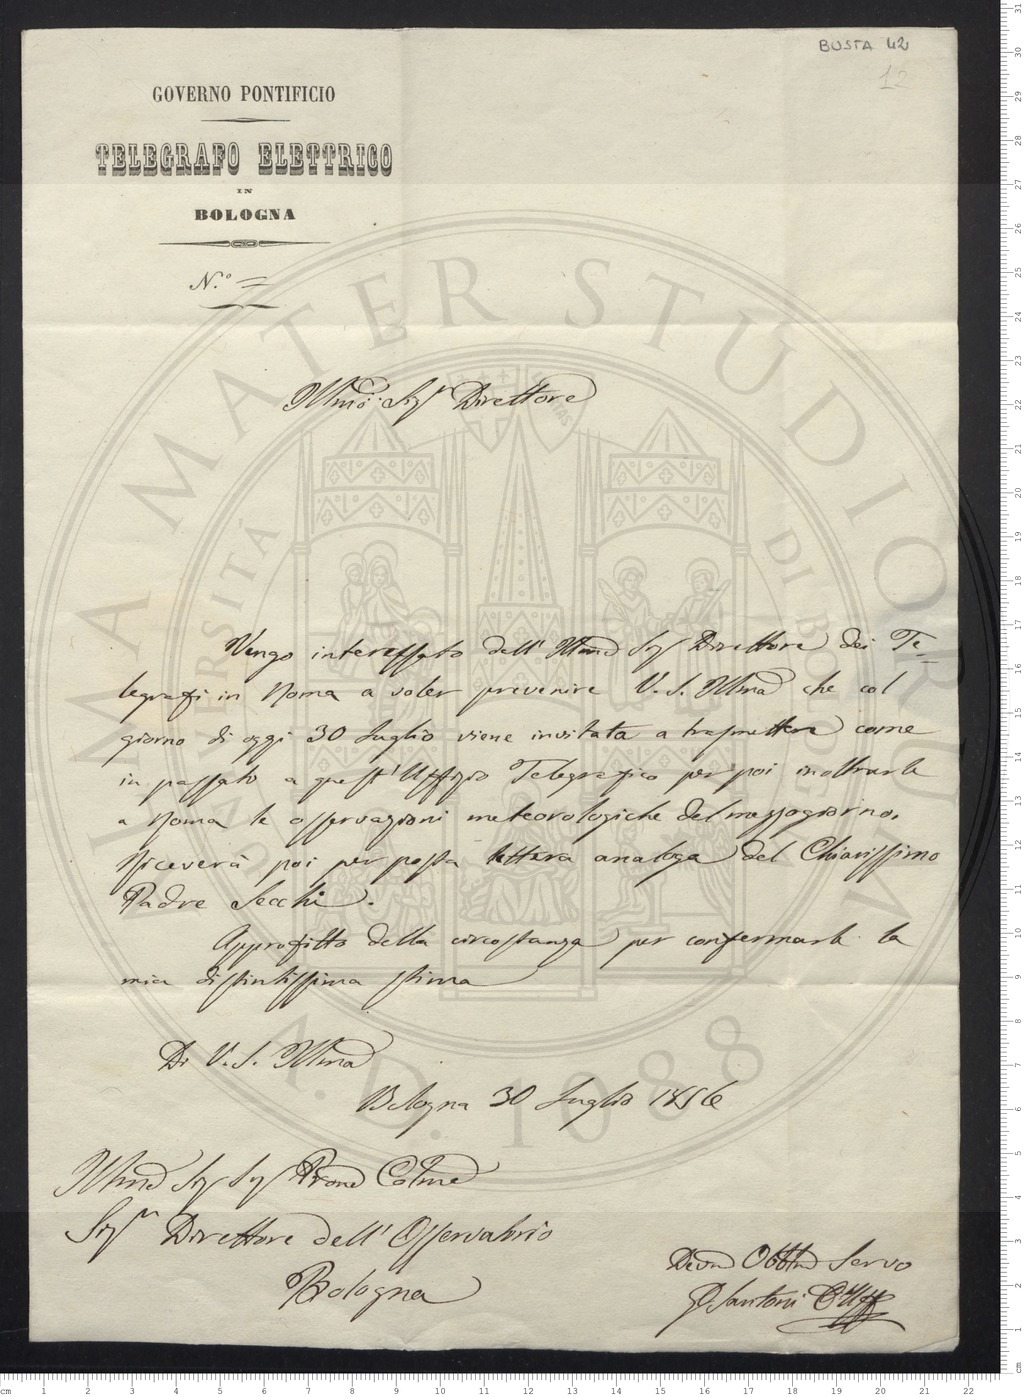 BUSTA 42
12
GOVERNO PONTIFICIO
TELEGRAFO ELETTRICO
IN
BOLOGNA
N.° =
Illmo: Sigr Direttore
Vengo interessato dall' Illmo Sigr Direttore dei Te=
legrafi in Roma a voler prevenire V. S. Illma che col
giorno di oggi 30 Luglio viene invitata a trasmettere come
in passato a quest' Uffizio Telegrafico per poi inoltrarle
a Roma le osservazioni meteorologiche del mezzogiorno.
Riceverà poi per posta lettera analoga del Chiarissimo
Padre Secchi.
Approfitto della circostanza per confermarle la
mia distintissima stima
Di V. S. Illma
Bologna 30 Luglio 1856
Illmo Sigr Sigr Prone Colmo
Sigr Direttore dell' Osservatorio
Bologna
Devmo Obbmo Servo
Santoni
ALMA MATER STUDIORUM
UNIVERSITÀ DI BOLOGNA
A.D. 1088